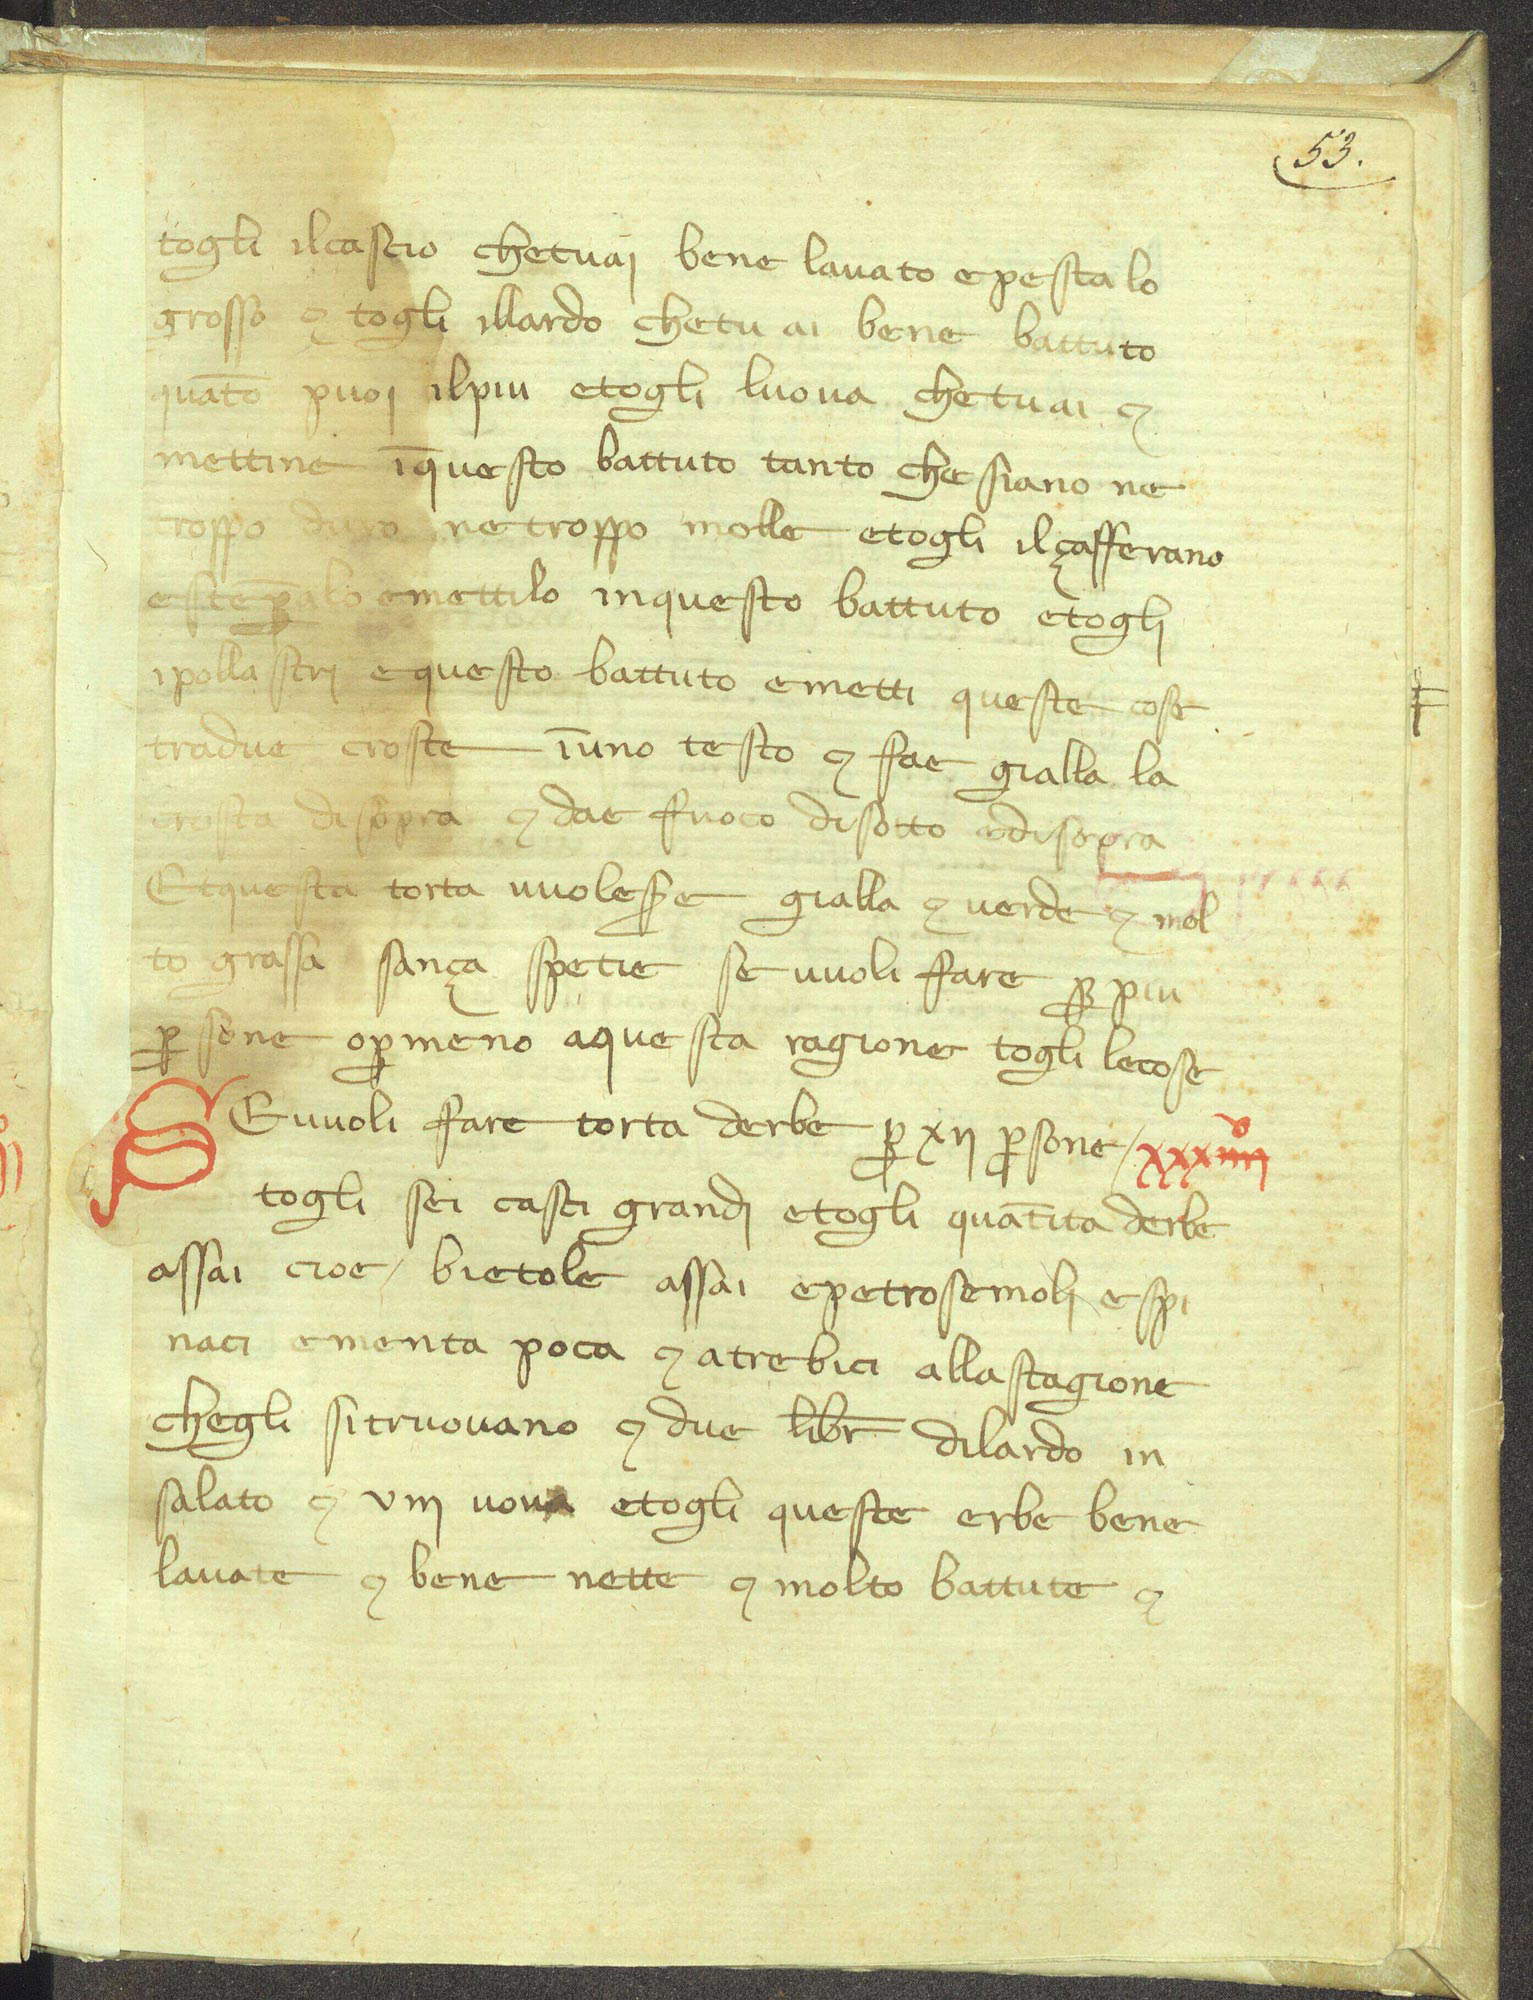 53.
togli ilcascio chetuaj bene lauato epestalo
grosso ⁊ togli illardo chetu ai bene battuto
quāto puoj ilpiu etogli luoua chetuai ⁊
mettine īquesto battuto tanto che siano ne
troppo duro ne troppo molle etogli ilçafferano
estēꝑalo emettilo inquesto battuto etoglj
ipollastrj equesto battuto emetti queste cose
tradue croste īuno testo ⁊ fae gialla la
crosta disopra ⁊ dae fuoco disotto edisopra
Etquesta torta uuoleẜe gialla ⁊ uerde ⁊ mol
to grassa sança spetie se uuoli fare ꝑ piu
ꝑsone oꝑmeno aquesta ragione togli lecose
SEuuoli fare torta derbe ꝑ xij ꝑsone / xxxiiijº
togli sei casci grandj etogli quātita derbe
assai cioe / bietole assai epetrosemolj espi
naci ementa poca ⁊ atrebici allastagione
chegli sitruouano ⁊ due libr̄ dilardo in
salato ⁊ viij uoua etogli queste erbe bene
lauate ⁊ bene nette ⁊ molto battute ⁊